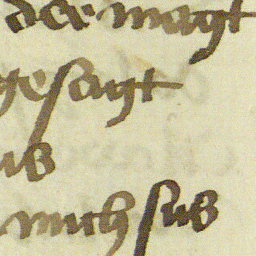 der magt
gesagt
us
mich sus